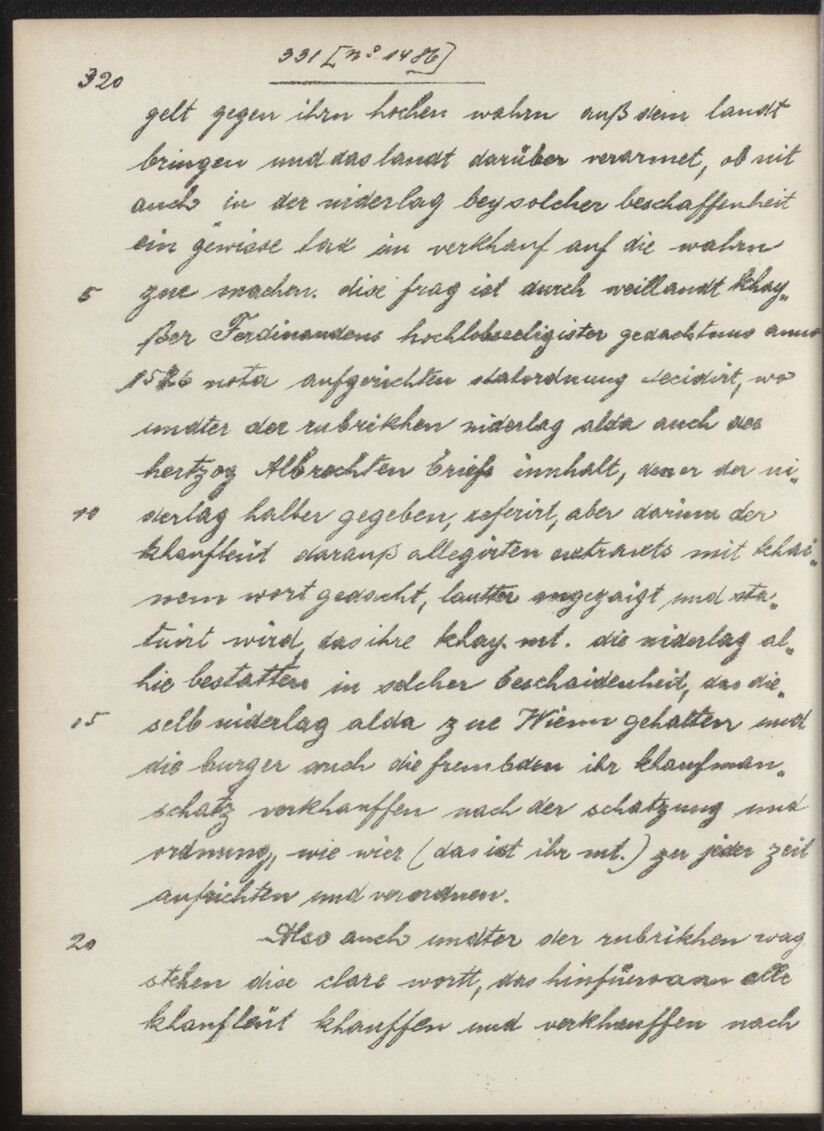 331 [nº 1486]
320
gelt gegen ihrn hochen wahrn auß dem landt
bringen und das landt darüber verarmet, ob nit
auch in der niderlag bey solcher beschaffenheit
ein gewisse tax im verkhauf auf die wahrn
5 zue machen. dise frag ist durch weillandt khay„
ßer Ferdinandens hochlobseeligister gedachtnus anno
1526 nota aufgerichten stalordnung decidirt, wo
undter der rubrikhen niderlag alda auch des
hertzog Albrechten briefs innhalt, den er der ni„
10 derlag halber gegeben, referirt, aber darinn der
khaufleüt darauß allegirten extracts mit khai„
nem wort gedacht, lautter angezaigt und sta„
tuirt wird, das ihre khay. mt. die niderlag al„
hie bestatten in solcher beschaidenheit, das die„
15 selb niderlag alda zue Wienn gehalten und
die burger auch die frembden ihr khaufman„
schatz verkhauffen nach der schatzung und
ordnung, wie wier (das ist ihr mt.) zu jeder zeit
aufrichten und verordnen.
20 Also auch undter der rubrikhen wag
stehen dise clare wortt, das hinfüro alle
khaufleüt khauffen und verkhauffen nach